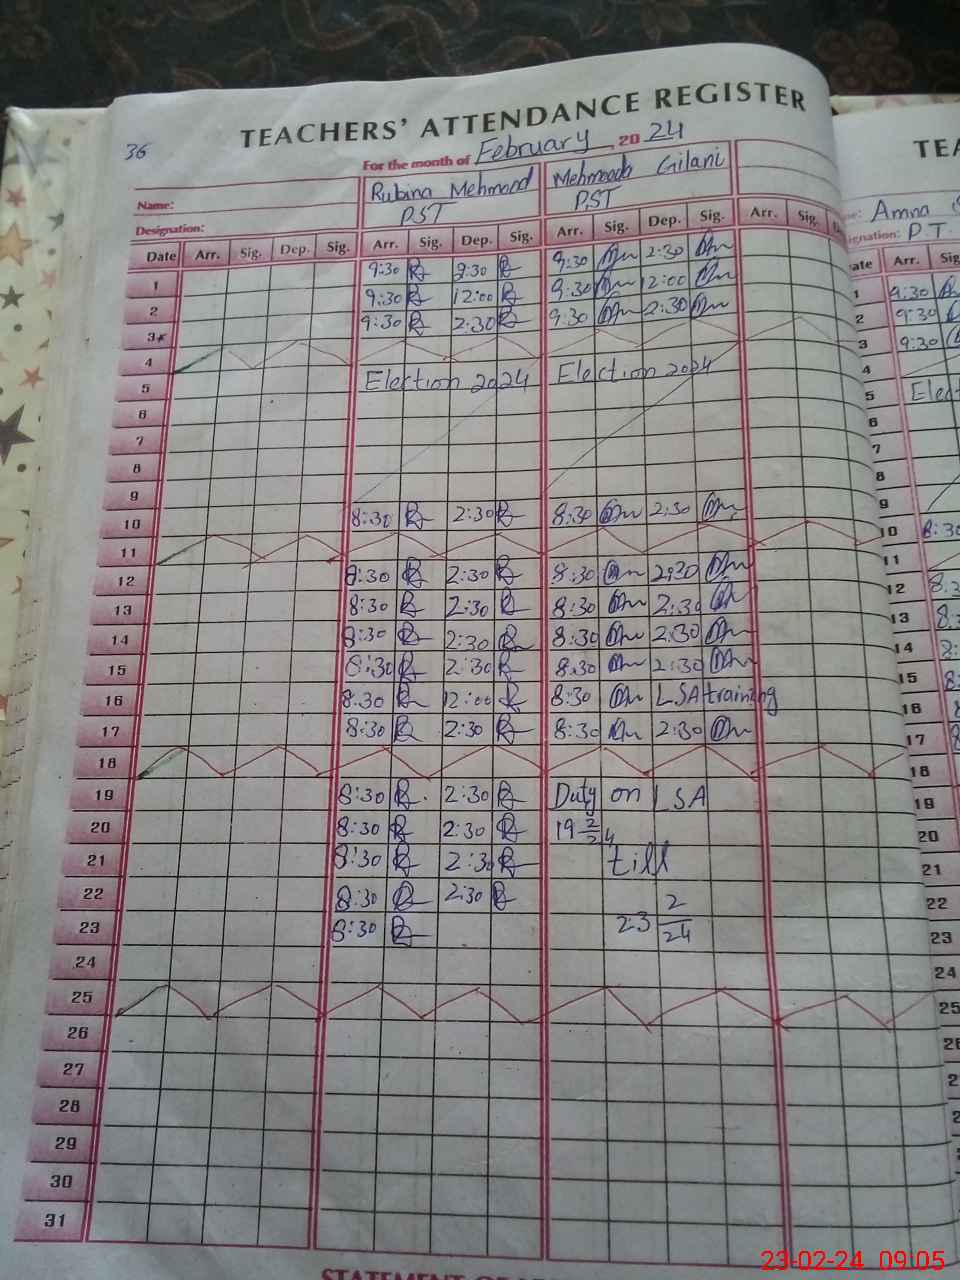 36
TEACHERS' ATTENDANCE REGISTER
For the month of February, 20 24
Name: Rubina Mehmood Mehmooda Gilani
Designation: PST PST
Date Arr. Sig. Dep. Sig. Arr. Sig. Dep. Sig. Arr. Sig. Dep. Sig. Arr. Sig.
1 9:30 2:30 9:30 2:30
2 9:30 12:00 9:30 12:00
3* 9:30 2:30 9:30 2:30
4
5 Election 2024 Election 2024
6
7
8
9
10 8:30 2:30 8:30 2:30
11
12 8:30 2:30 8:30 2:30
13 8:30 2:30 8:30 2:30
14 8:30 2:30 8:30 2:30
15 8:30 2:30 8:30 2:30
16 8:30 12:00 8:30 LSA training
17 8:30 2:30 8:30 2:30
18
19 8:30 2:30 Duty on LSA
20 8:30 2:30 19 2/24
21 8:30 2:30 till
22 8:30 2:30
23 8:30 23 2/24
24
25
26
27
28
29
30
31
TEA
Amna
Designation: P.T
ate Arr. Sig
1 9:30
2 9:30
3 9:30
4
5 Elect
6
7
8
9
10 8:30
11
12 8:3
13 8:
14 8:
15 8
16 8
17 8
18
19
20
21
22
23
24
25
26
23-02-24 09:05